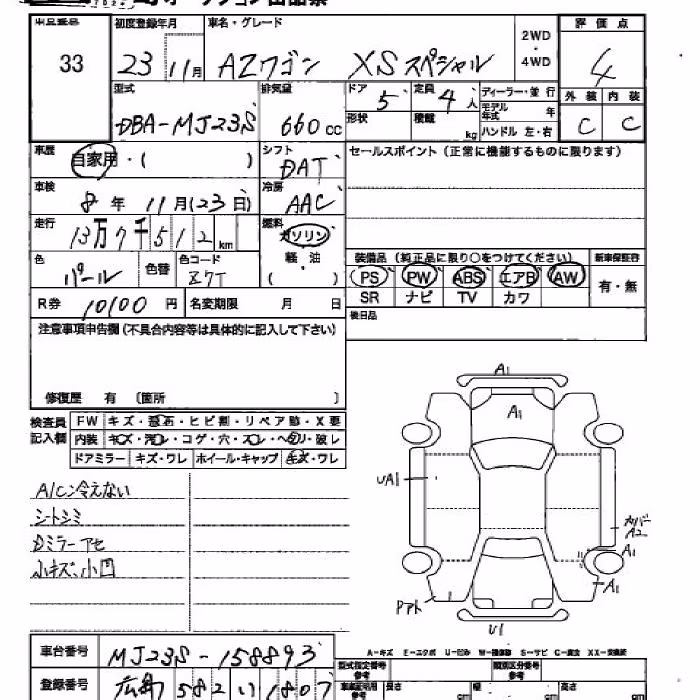 オークション出品票
車名・グレード
初度登録年月
評価点
33
23 11月
AZワゴン XSスペシャル
2WD・4WD
4
型式
排気量
ドア 5
定員 4人
ディーラー・並行
外装 内装
DBA-MJ23S
660cc
形状
積載 kg
モデル年式 年
ハンドル 左・右
C C
車歴
自家用・( )
シフト
DAT
セールスポイント（正常に機能するものに限ります）
車検
8年 11月(23日)
冷房
AAC
走行
13万7千512km
燃料
ガソリン
軽・油
( )
装備品（純正品に限り○をつけてください）
新車保証書
色
パール
色替
色コード
Z7T
PS PW ABS エアB AW
有・無
SR ナビ TV カワ
R券 10100円
名変期限 月 日
後日品
注意事項申告欄（不具合内容等は具体的に記入して下さい）
修復歴 有 〔箇所 〕
検査員記入欄
FW キズ・飛石・ヒビ割・リペア跡・X要
内装 キズ・汚レ・コゲ・穴・スレ・ヘタリ・破レ
ドアミラー キズ・ワレ ホイール・キャップ キズ・ワレ
A/C冷えない
シートシミ
Dミラーアセ
小キズ、小凹
A1
A1
UA1
A2
A1
A1
U1
車台番号
MJ23S-158893
A-キズ E-エクボ U-凹み W-補修跡 S-サビ C-腐食 XX-交換済
登録番号
広島 582 い 1807
型式指定番号
類別区分番号
長さ cm 幅 cm 高さ cm